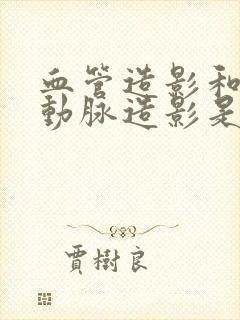 血管造影和
動脈造影是
賈樹良